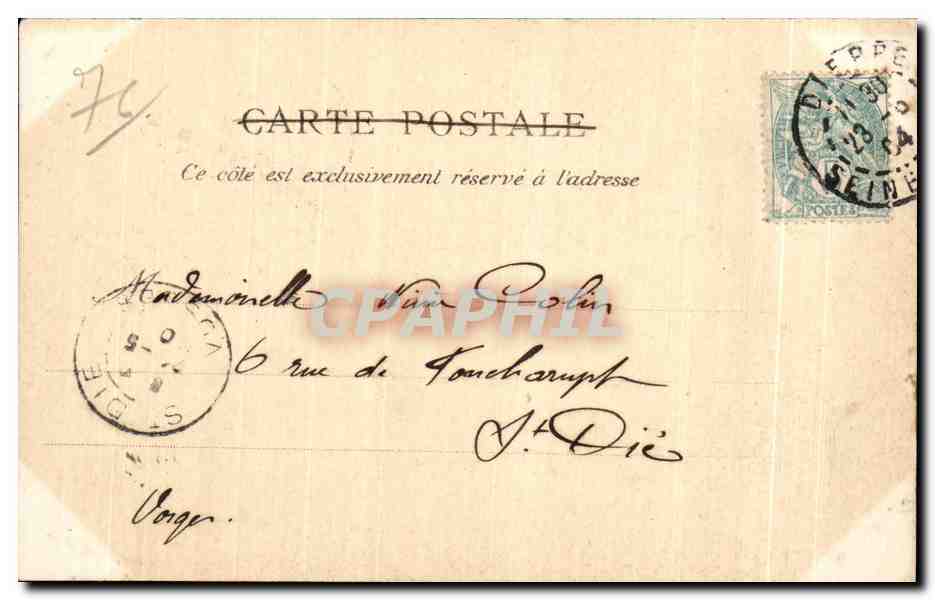 76.
CARTE POSTALE
Ce côté est exclusivement réservé à l'adresse
DIEPPE
30
23 - 5
04
SEINE
POSTES
CPAPHIL
Mademoiselle Nina Colin
6 rue de Foucharupt
St. Dié
Vosges.
ST DIE